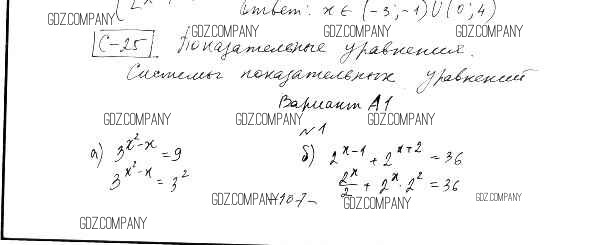 Ответ: x ∈ (-3; -1) ∪ (0; 4)
GDZ.COMPANY
GDZ.COMPANY GDZ.COMPANY GDZ.COMPANY
С-25 Показательные уравнения.
Системы показательных уравнений
Вариант А1
GDZ.COMPANY GDZ.COMPANY GDZ.COMPANY
№1
а) 3^{x^2-x} = 9 б) 2^{x-1} + 2^{x+2} = 36
3^{x^2-x} = 3^2 2^x/2 + 2^x · 2^2 = 36
GDZ.COMPANY -107- GDZ.COMPANY GDZ.COMPANY
GDZ.COMPANY